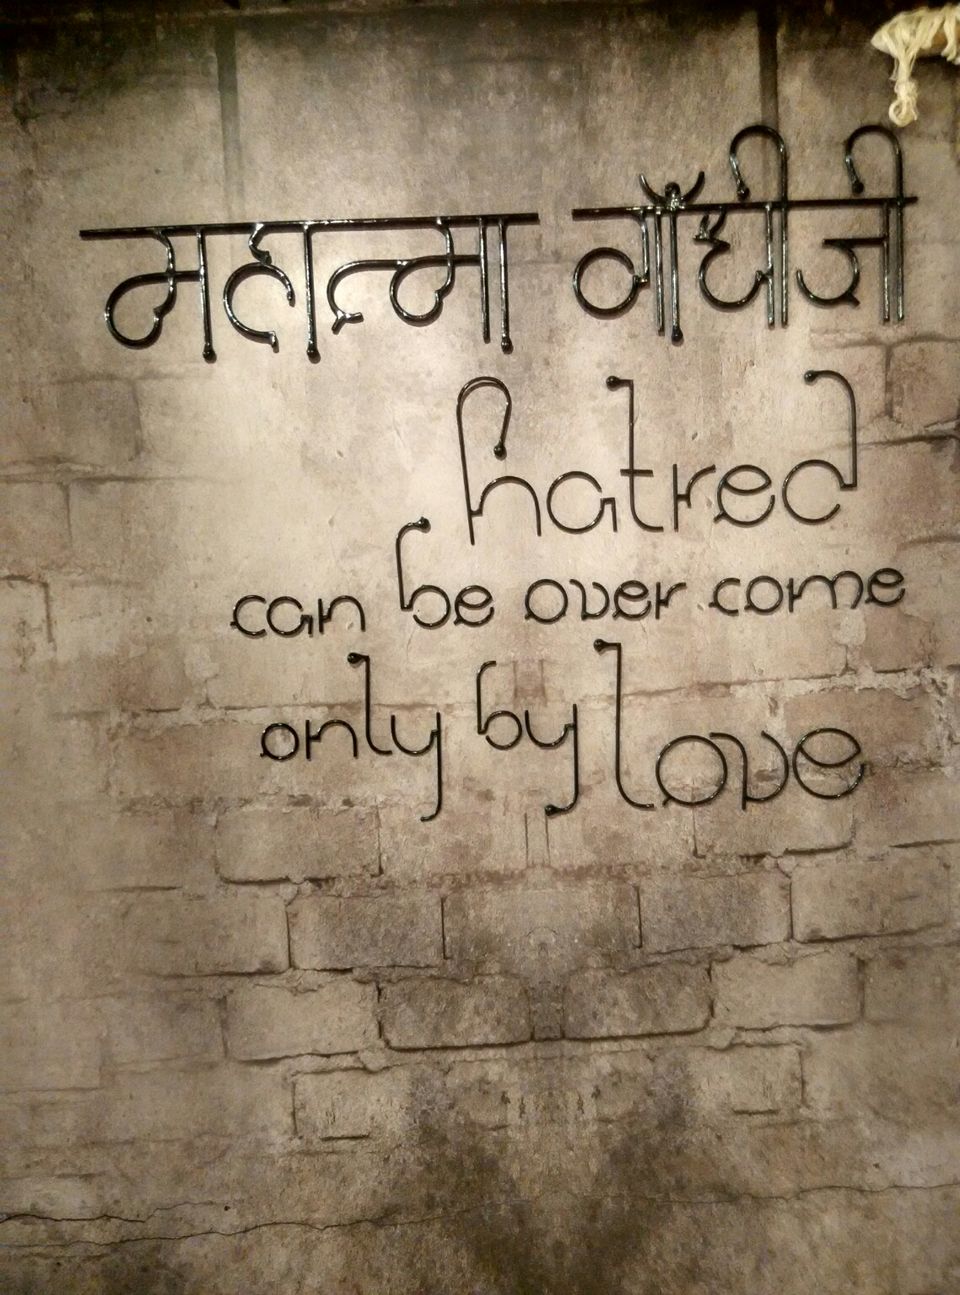 महात्मा गाँधीजी
hatred
can be over come
only by love